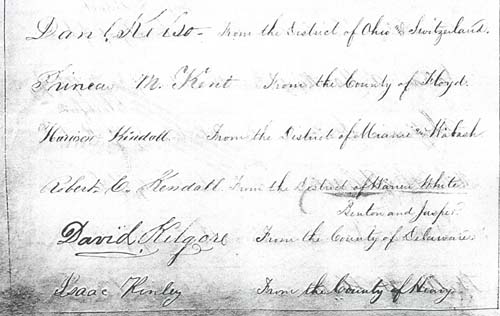 Danl. Kelso — From the District of Ohio & Switzerland.
Phineas M. Kent From the County of Floyd.
Harrison Kendall From the District of Miami & Wabash
Robert C. Kendall From the District of Warren White
Benton and Jasper.
David Kilgore From the County of Delaware
Isaac Kinley From the County of Henry